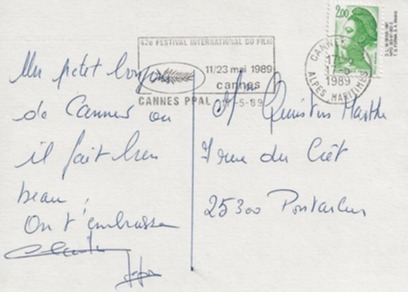 42e FESTIVAL INTERNATIONAL DU FILM
11/23 mai 1989
cannes
CANNES PPAL
-5-89
2,00
CANNES
17
1989
ALPES MARITIMES
Un petit bonjour
de Cannes ou
il fait bien
beau,
On t'embrasse
M Quentin Marthe
7 rue du Crêt
25300 Pontarlier